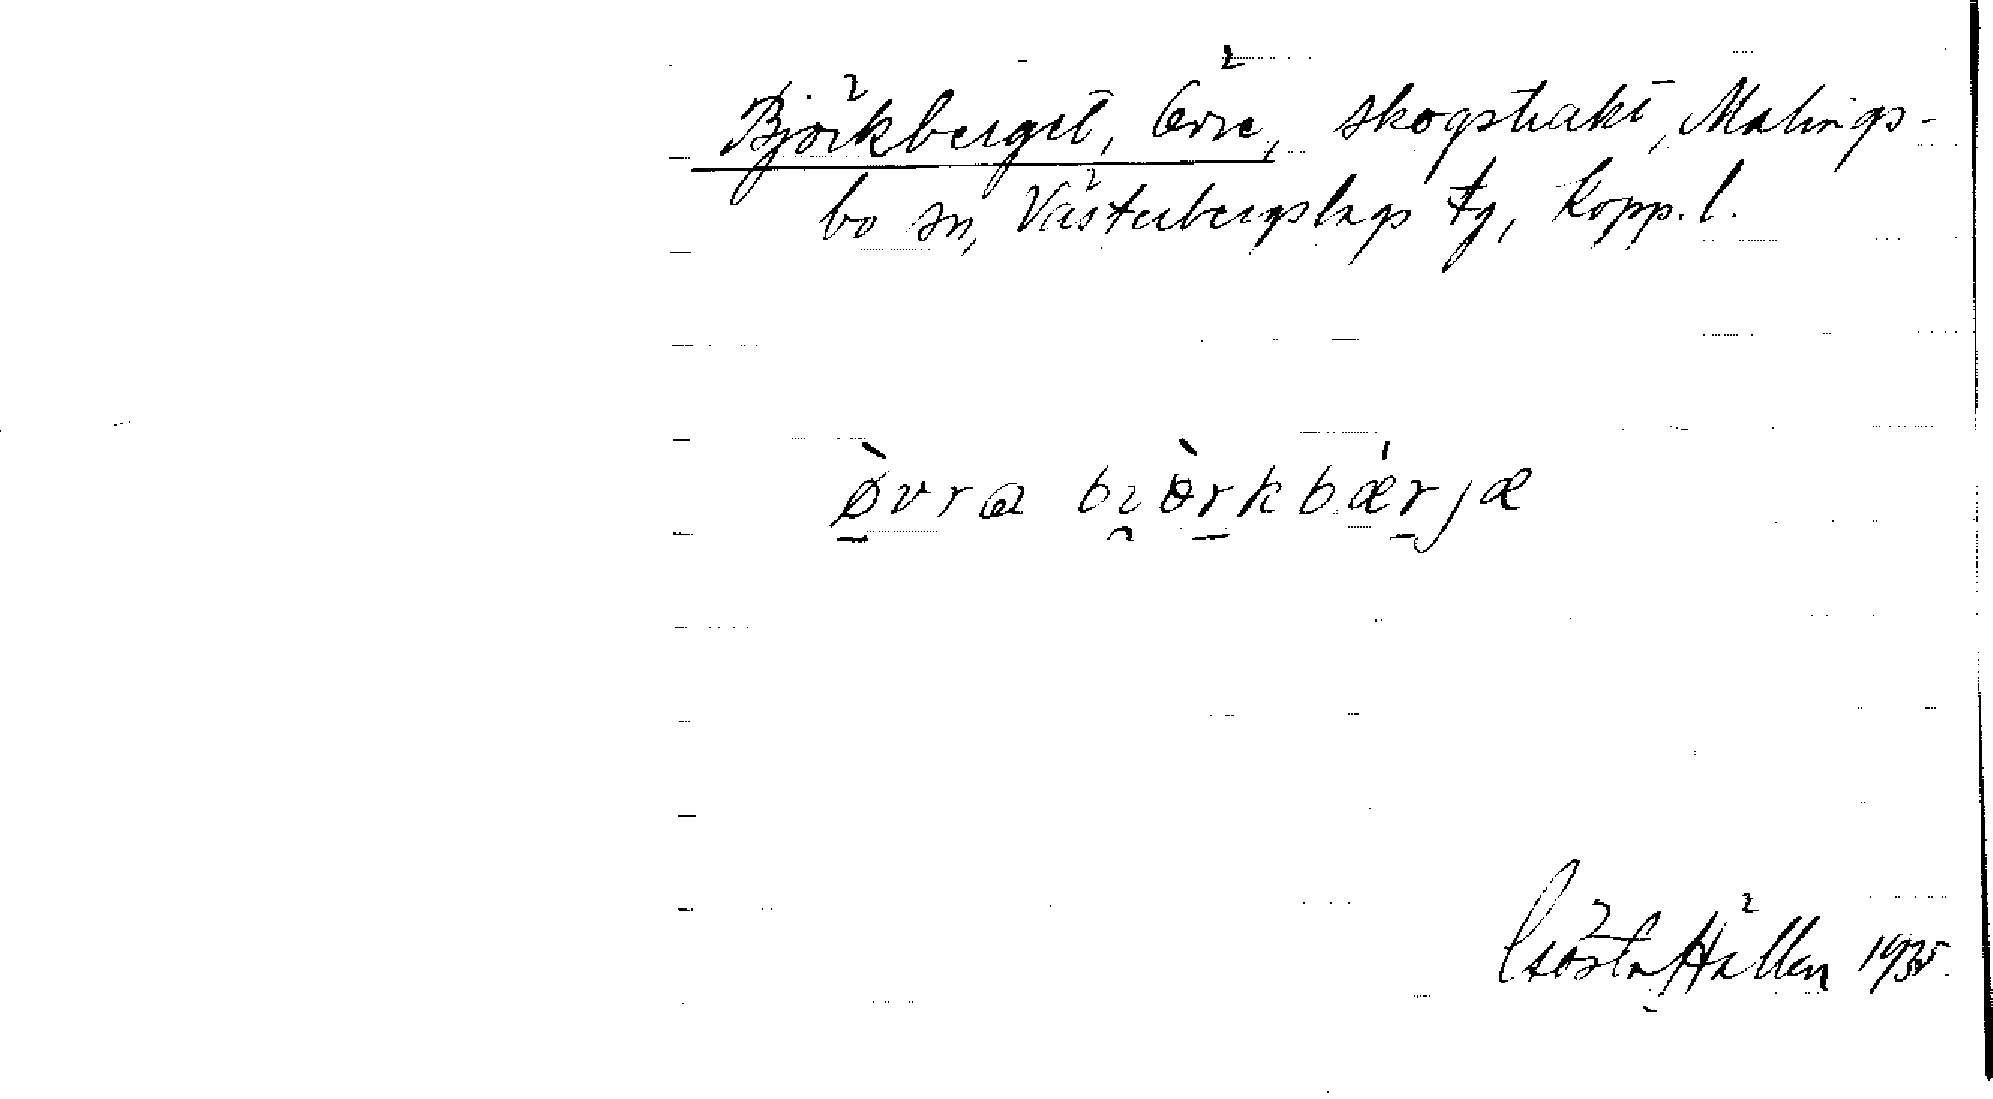 Björkberget, Övre, skogstrakt, Malings-
bo sn, Västerbergslags tg, Kopp. l.
ø̀vra bɩ̯ò̤rkbǽrjæ
Gösta Hállen 1935.